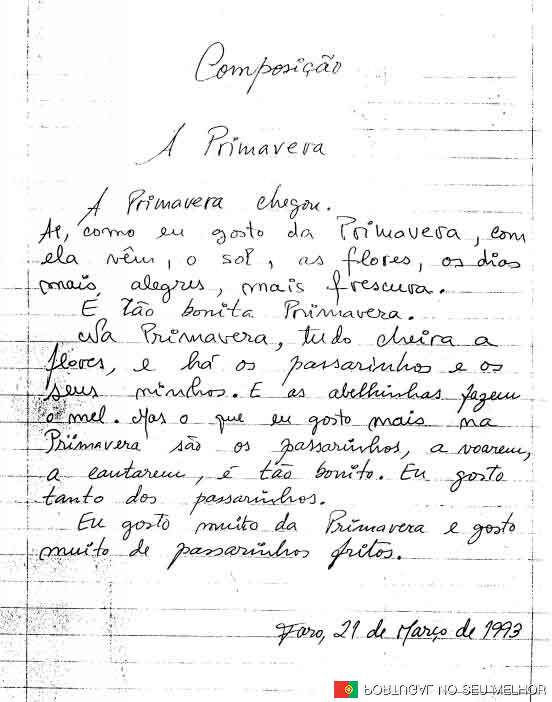 Composição
A Primavera
A Primavera chegou.
Ae, como eu gosto da Primavera, com
ela vêm, o sol, as flores, os dias
mais alegres, mais frescura.
E tão bonita Primavera.
Na Primavera, tudo cheira a
flores, e há os passarinhos e os
seus ninhos. E as abelhinhas fazem
o mel. Mas o que eu gosto mais na
Primavera são os passarinhos, a voarem,
a cantarem, é tão bonito. Eu gosto
tanto dos passarinhos.
Eu gosto muito da Primavera e gosto
muito de passarinhos fritos.
Faro, 21 de Março de 1993
PORTUGAL NO SEU MELHOR